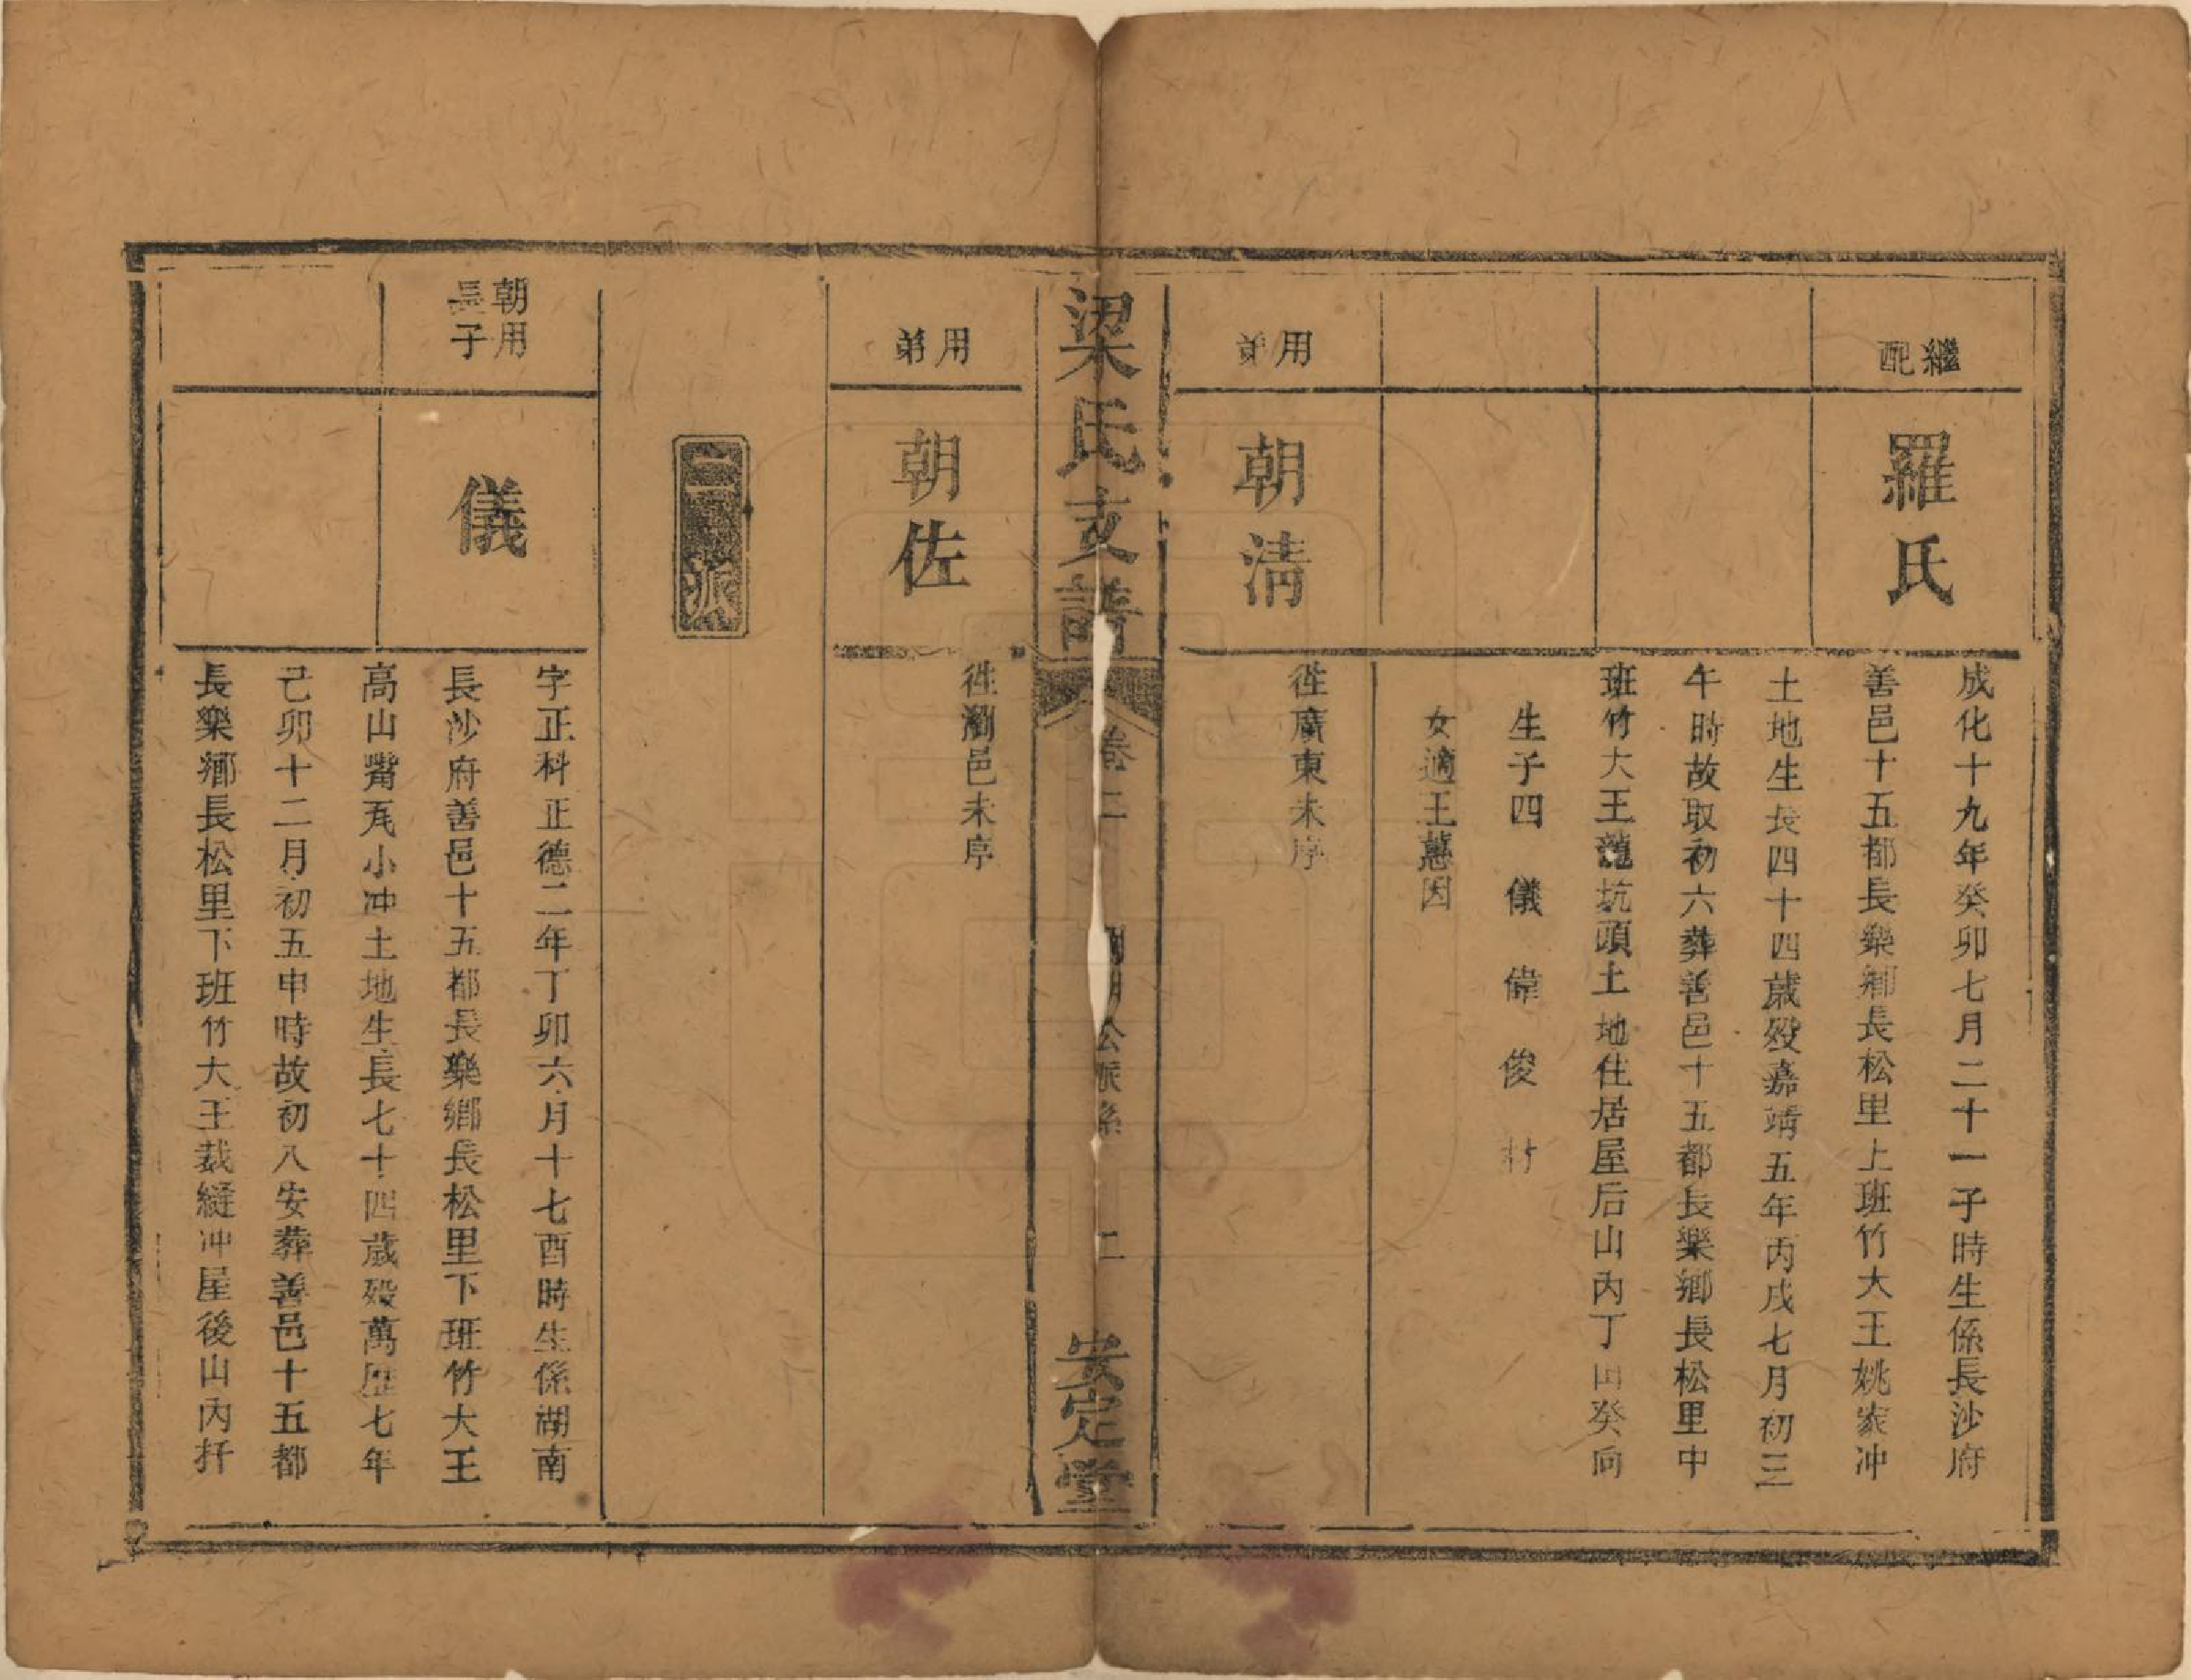 繼配
羅氏
成化十九年癸卯七月二十一子時生係長沙府
善邑十五都長樂鄉長松里上班竹大王姚家冲
土地生長四十四歲歿嘉靖五年丙戌七月初三
午時故取初六葬善邑十五都長樂鄉長松里中
班竹大王蘢坑頭土地住居屋后山內丁山癸向
生子四 儀 偉 俊
女適王蕙因
用弟
朝淸
徃廣東未序
梁氏支譜
卷二
公派系
二
安定堂
用弟
朝佐
徃瀏邑未序
二派
朝用
長子
儀
字正科正德二年丁卯六月十七酉時生係湖南
長沙府善邑十五都長樂鄉長松里下班竹大王
高山嘴瓦小冲土地生長七十四歲歿萬歴七年
己卯十二月初五申時故初八安葬善邑十五都
長樂鄉長松里下班竹大王裁縫冲屋後山內扦